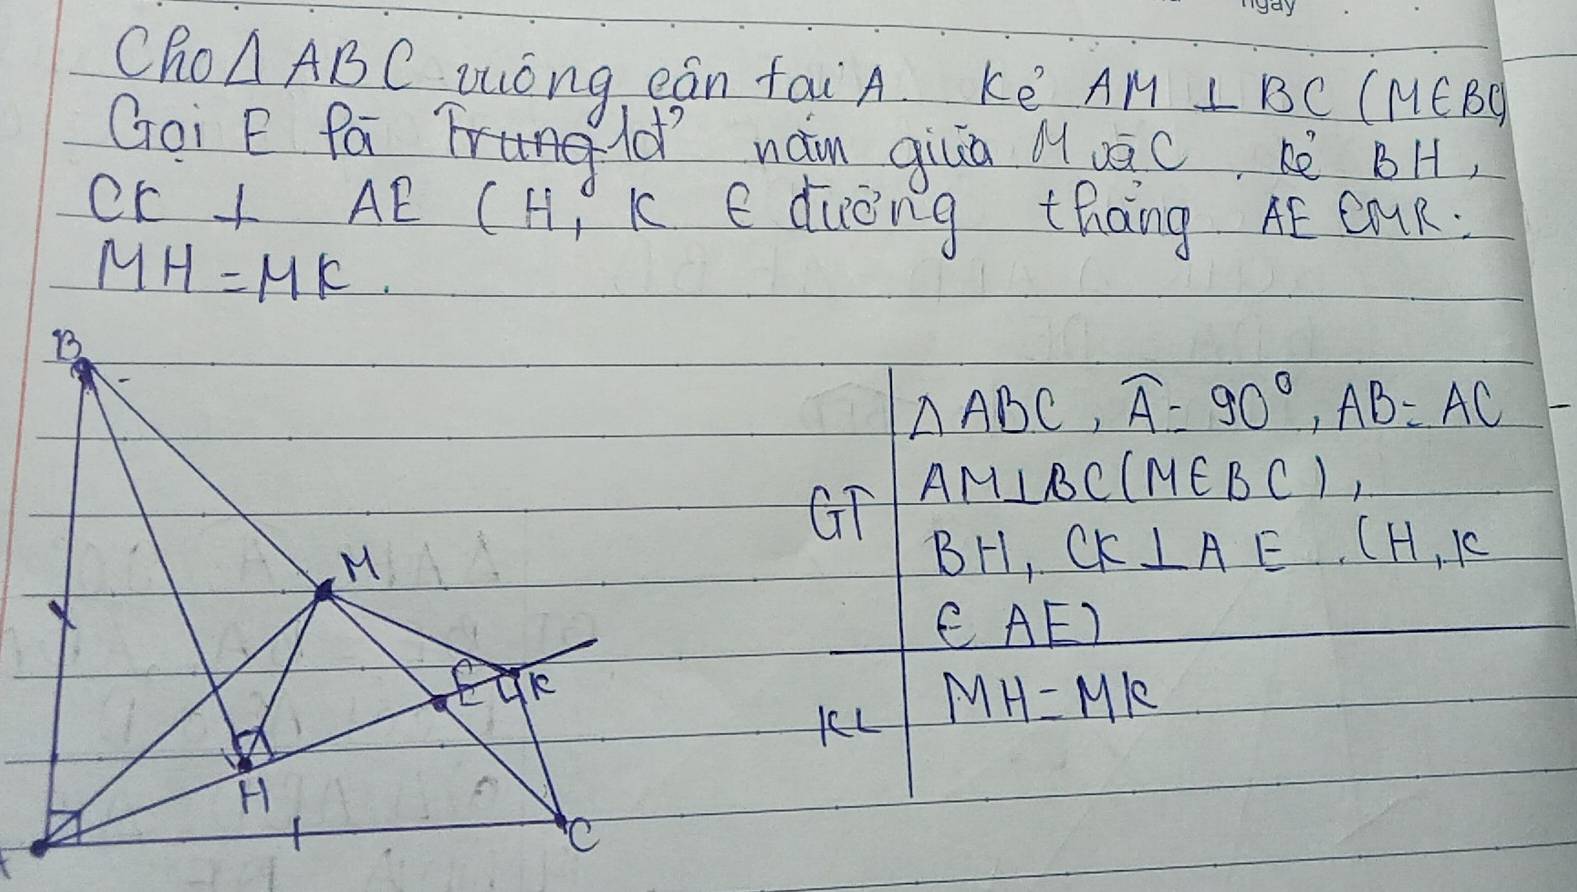 ngày
Cho Δ ABC vuông cân tại A. Kẻ AM ⊥ BC (M∈BC)
Gọi E là nằm giữa M và C. kẻ BH,
CK ⊥ AE (H, K ∈ đường thẳng AE CMR:
MH = MK.
B
M
E
K
H
C
GT
Δ ABC, Â = 90°, AB = AC
AM⊥BC(M∈BC),
BH, CK⊥AE (H, K
∈ AE)
KL
MH = MK